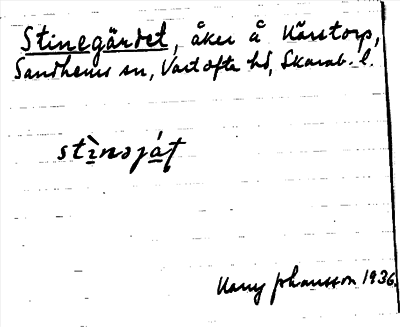 Stinegärdet, åker å Kårstorp,
Sandhems sn, Vartofta hd, Skarab. l.
stìnəját
Harry Johansson 1936.